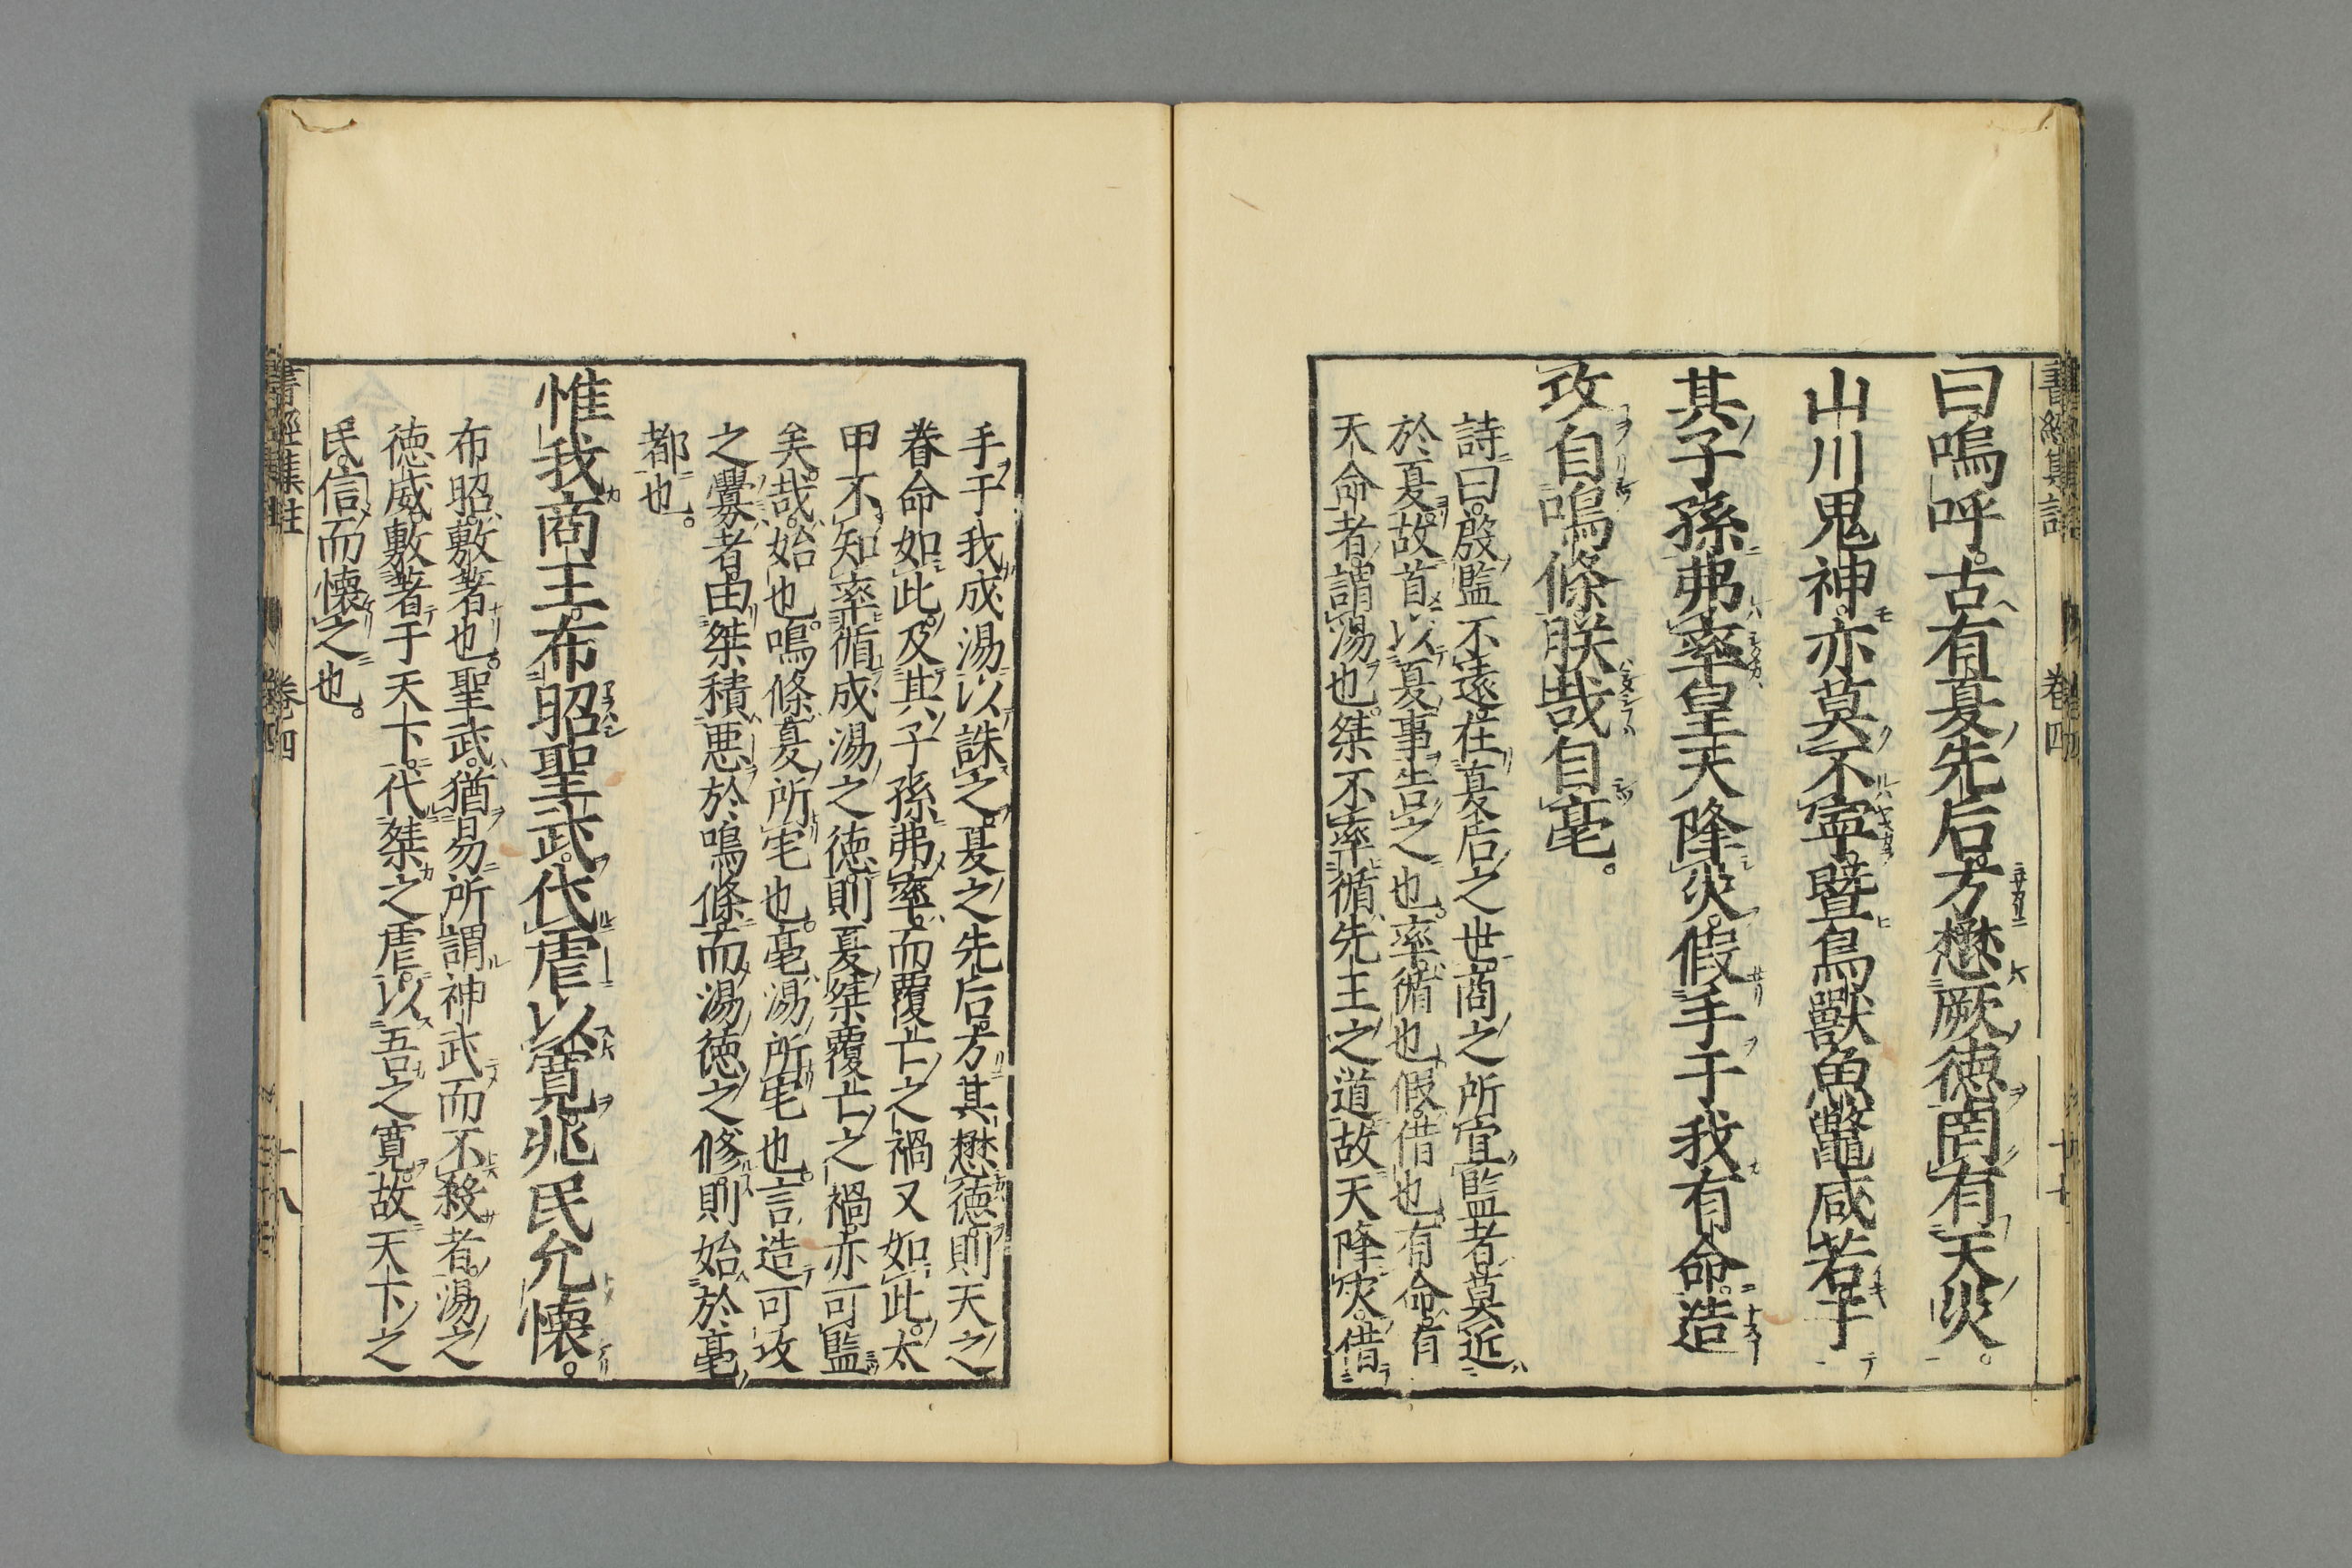 曰嗚呼。古有夏先后。方懋厥德。罔有天災。
山川鬼神。亦莫不寧。暨鳥獸魚鼈咸若。于
其子孫弗率。皇天降災。假手于我有命。造
攻自鳴條。朕哉自亳。
詩曰。殷監不遠。在夏后之世。商之所宜監者。莫近
於夏。故首以夏事告之也。率。循也。假。借也。有命。有
天命者。謂湯也。桀不率循先王之道。故天降災。借
手于我成湯以誅之。夏之先后。方其懋德。則天之
眷命如此。及其子孫弗率。而覆亡之禍又如此。太
甲不知率循成湯之德。則夏桀覆亡之禍。亦可監
矣。哉。始也。鳴條。夏所宅也。亳。湯所宅也。言造可攻
之釁者。由桀積惡於鳴條。而湯德之修。則始於亳
都也。
惟我商王。布昭聖武。代虐以寬。兆民允懷。
布昭。敷著也。聖武。猶易所謂神武而不殺者。湯之
德威。敷著于天下。代桀之虐。以吾之寬。故天下之
民。信而懷之也。
書經集註 卷四 十八